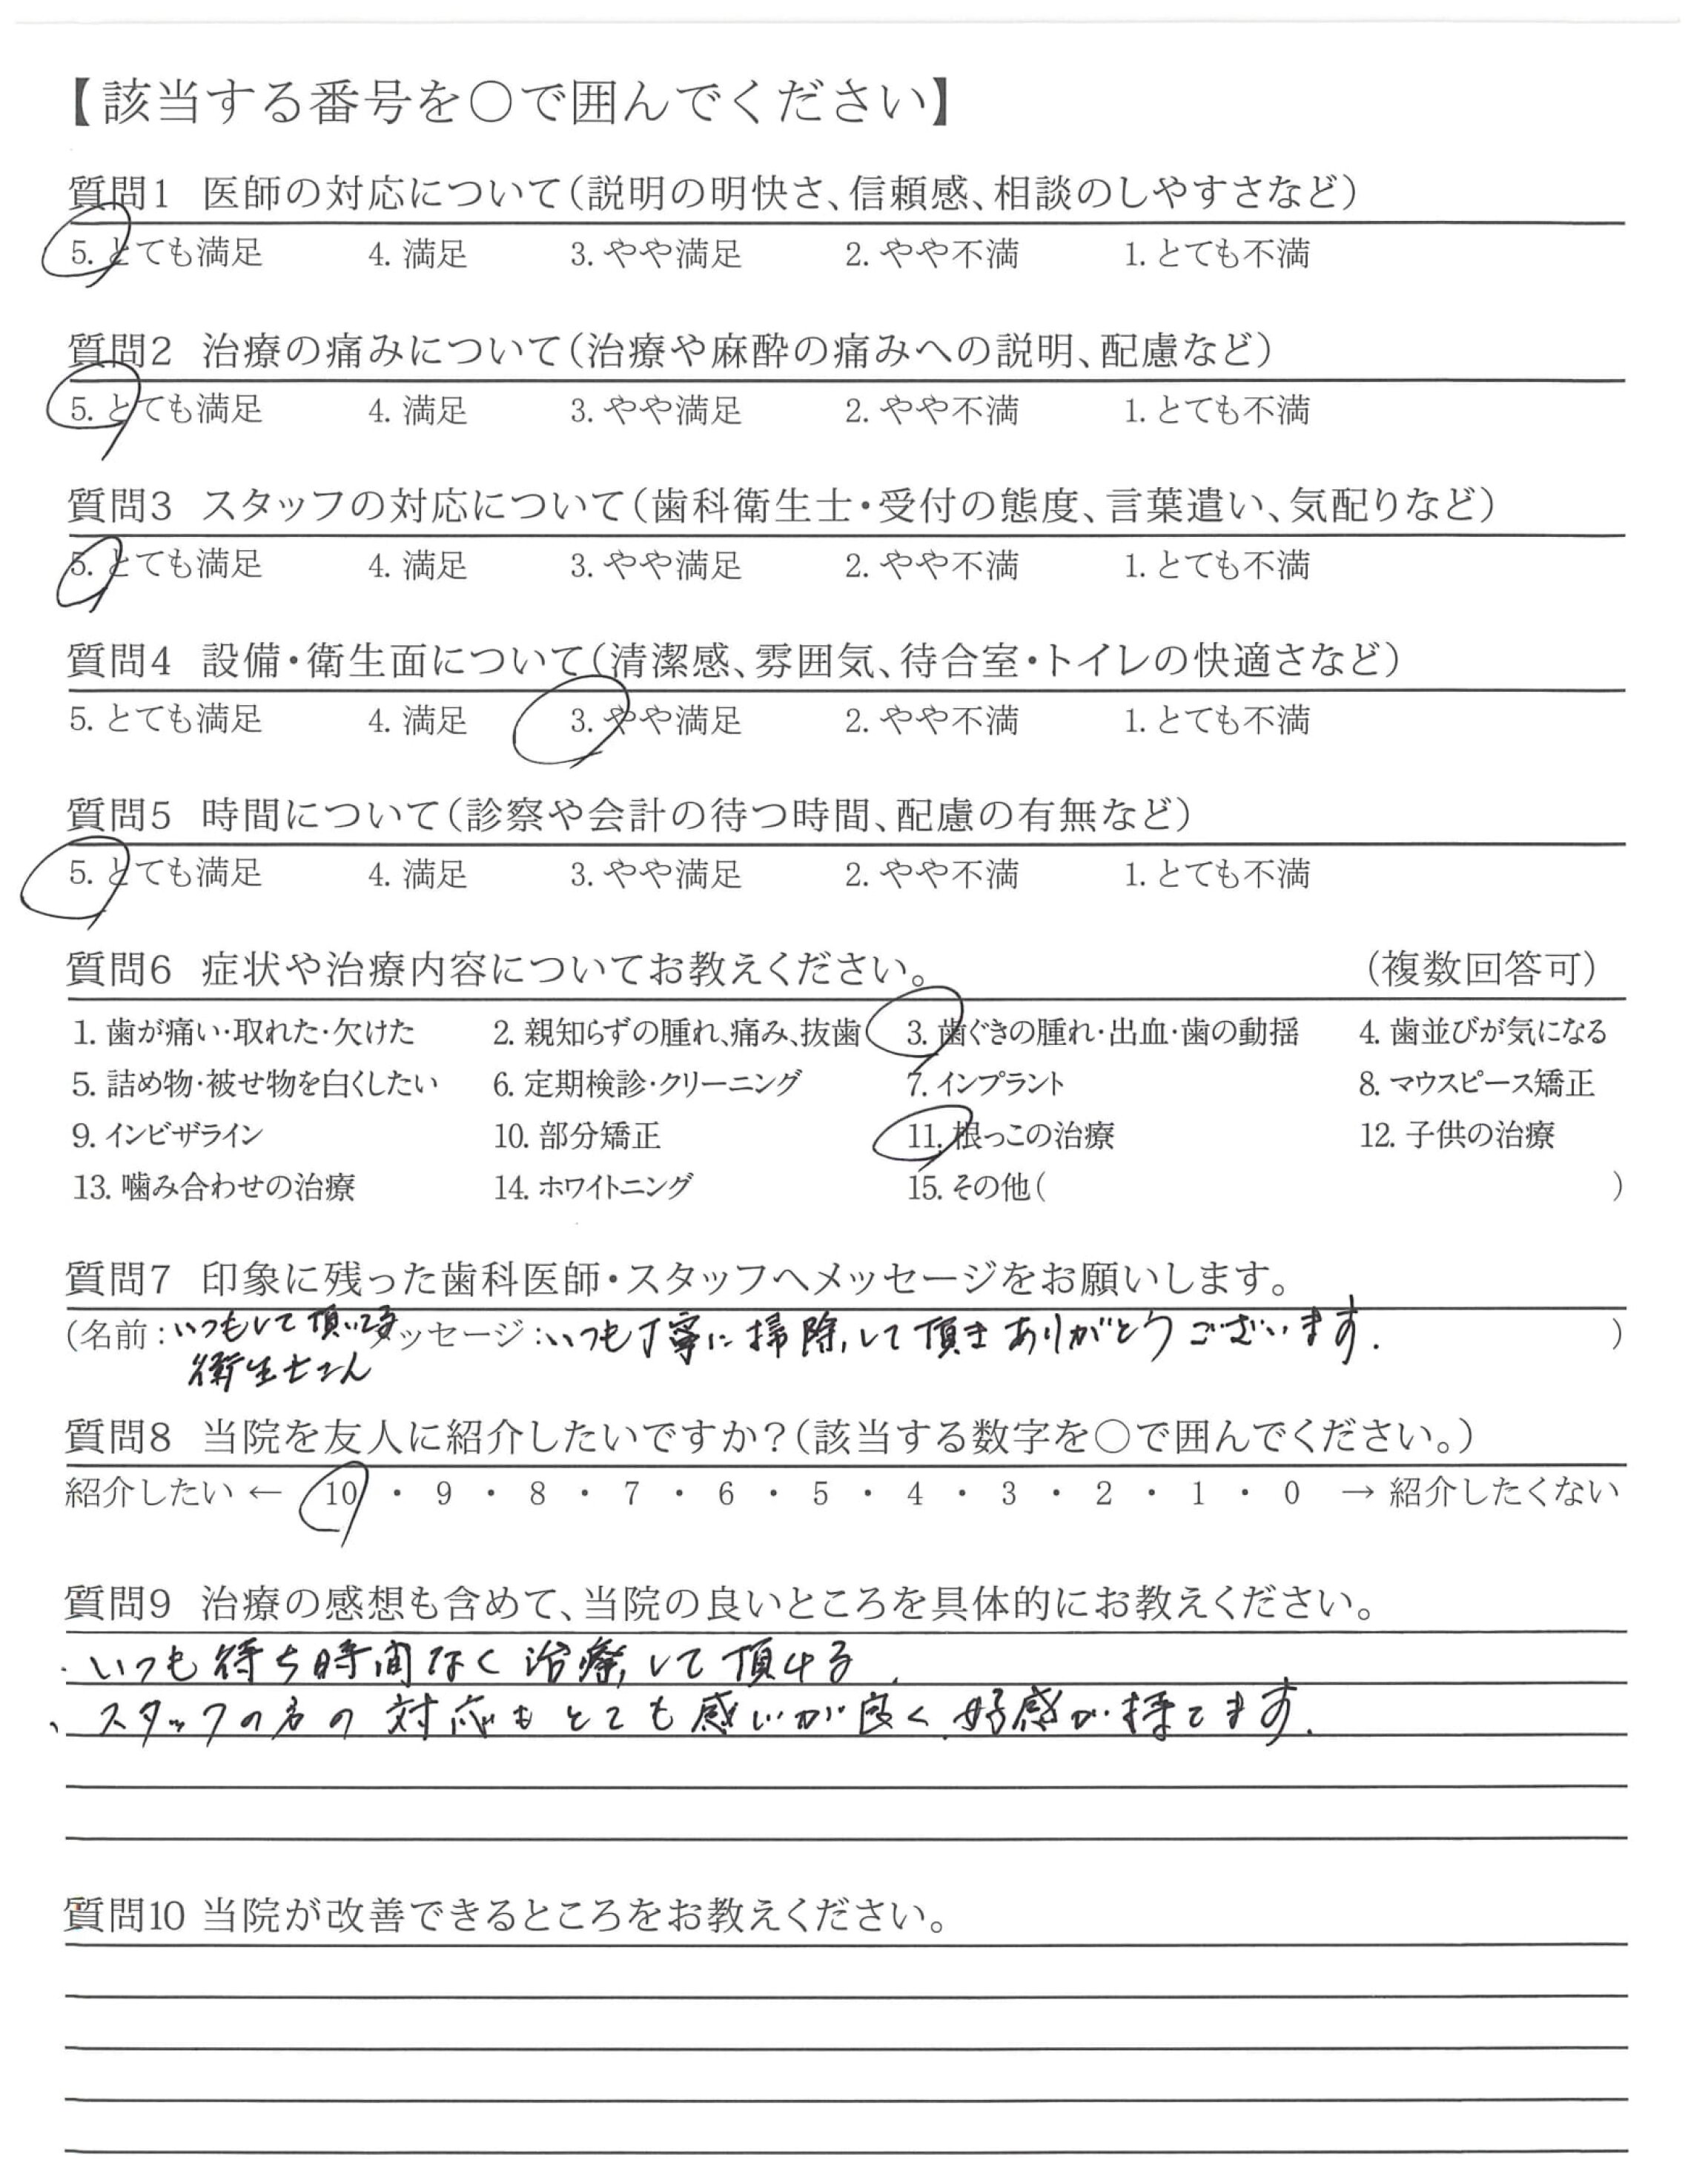 【該当する番号を〇で囲んでください】
質問1 医師の対応について(説明の明快さ、信頼感、相談のしやすさなど)
5. とても満足 4. 満足 3. やや満足 2. やや不満 1. とても不満
質問2 治療の痛みについて(治療や麻酔の痛みへの説明、配慮など)
5. とても満足 4. 満足 3. やや満足 2. やや不満 1. とても不満
質問3 スタッフの対応について(歯科衛生士・受付の態度、言葉遣い、気配りなど)
5. とても満足 4. 満足 3. やや満足 2. やや不満 1. とても不満
質問4 設備・衛生面について(清潔感、雰囲気、待合室・トイレの快適さなど)
5. とても満足 4. 満足 3. やや満足 2. やや不満 1. とても不満
質問5 時間について(診察や会計の待つ時間、配慮の有無など)
5. とても満足 4. 満足 3. やや満足 2. やや不満 1. とても不満
質問6 症状や治療内容についてお教えください。 (複数回答可)
1. 歯が痛い・取れた・欠けた 2. 親知らずの腫れ、痛み、抜歯 3. 歯ぐきの腫れ・出血・歯の動揺 4. 歯並びが気になる
5. 詰め物・被せ物を白くしたい 6. 定期検診・クリーニング 7. インプラント 8. マウスピース矯正
9. インビザライン 10. 部分矯正 11. 根っこの治療 12. 子供の治療
13. 噛み合わせの治療 14. ホワイトニング 15. その他( )
質問7 印象に残った歯科医師・スタッフへメッセージをお願いします。
(名前：いつもして頂いてる メッセージ：いつも丁寧に掃除して頂きありがとうございます. )
衛生士さん
質問8 当院を友人に紹介したいですか？(該当する数字を〇で囲んでください。)
紹介したい ← 10 ・ 9 ・ 8 ・ 7 ・ 6 ・ 5 ・ 4 ・ 3 ・ 2 ・ 1 ・ 0 → 紹介したくない
質問9 治療の感想も含めて、当院の良いところを具体的にお教えください。
・いつも待ち時間なく治療して頂ける
、スタッフの方の対応もとても感じが良く、好感が持てます.
質問10 当院が改善できるところをお教えください。